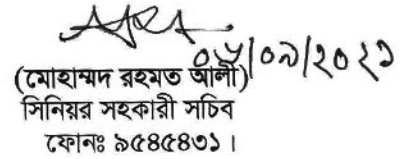 ০৮/০৯/২০২১
(মোহাম্মদ রহমত আলী)
সিনিয়র সহকারী সচিব
ফোনঃ ৯৫৪৫৪৩১।